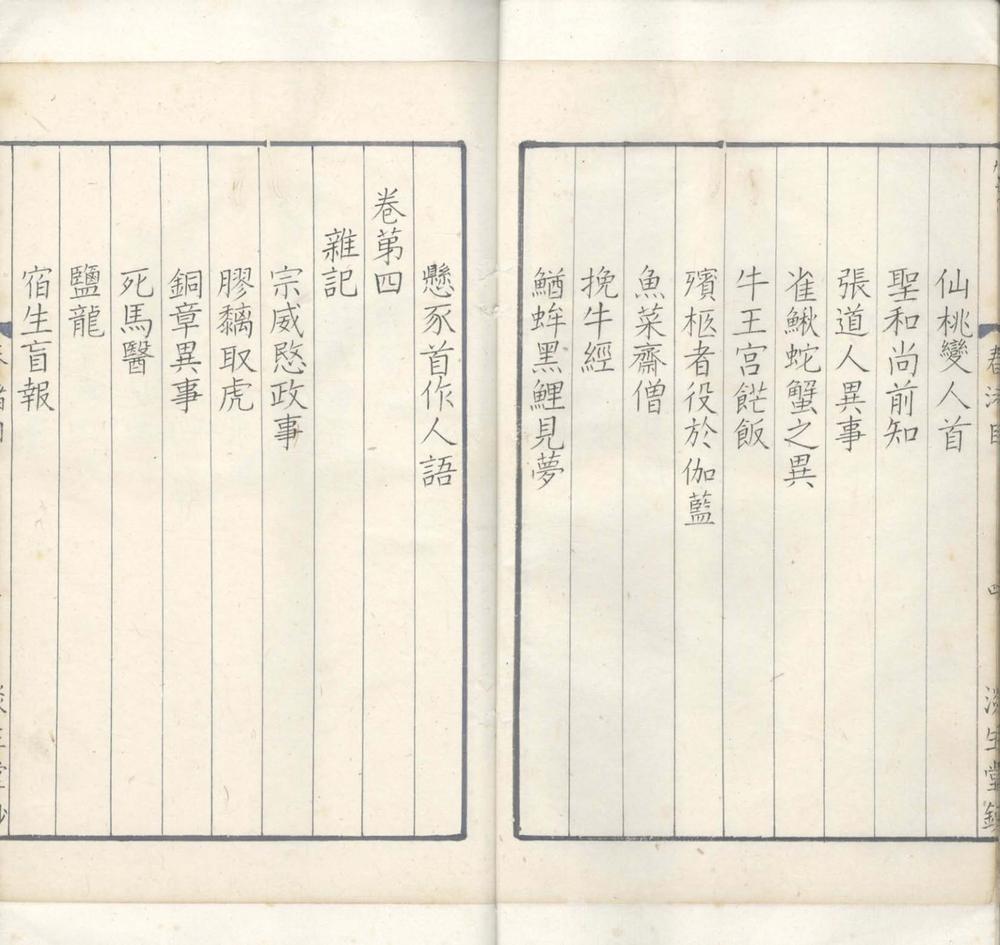 仙桃變人首
聖和尚前知
張道人異事
雀鰍蛇蟹之異
牛王宮䬪飯
殯柩者役於伽藍
魚菜齋僧
挽牛經
鰌蛑黑鯉見夢
懸豕首作人語
卷第四
雜記
宗威愍政事
膠黐取虎
銅章異事
死馬醫
鹽龍
宿生盲報